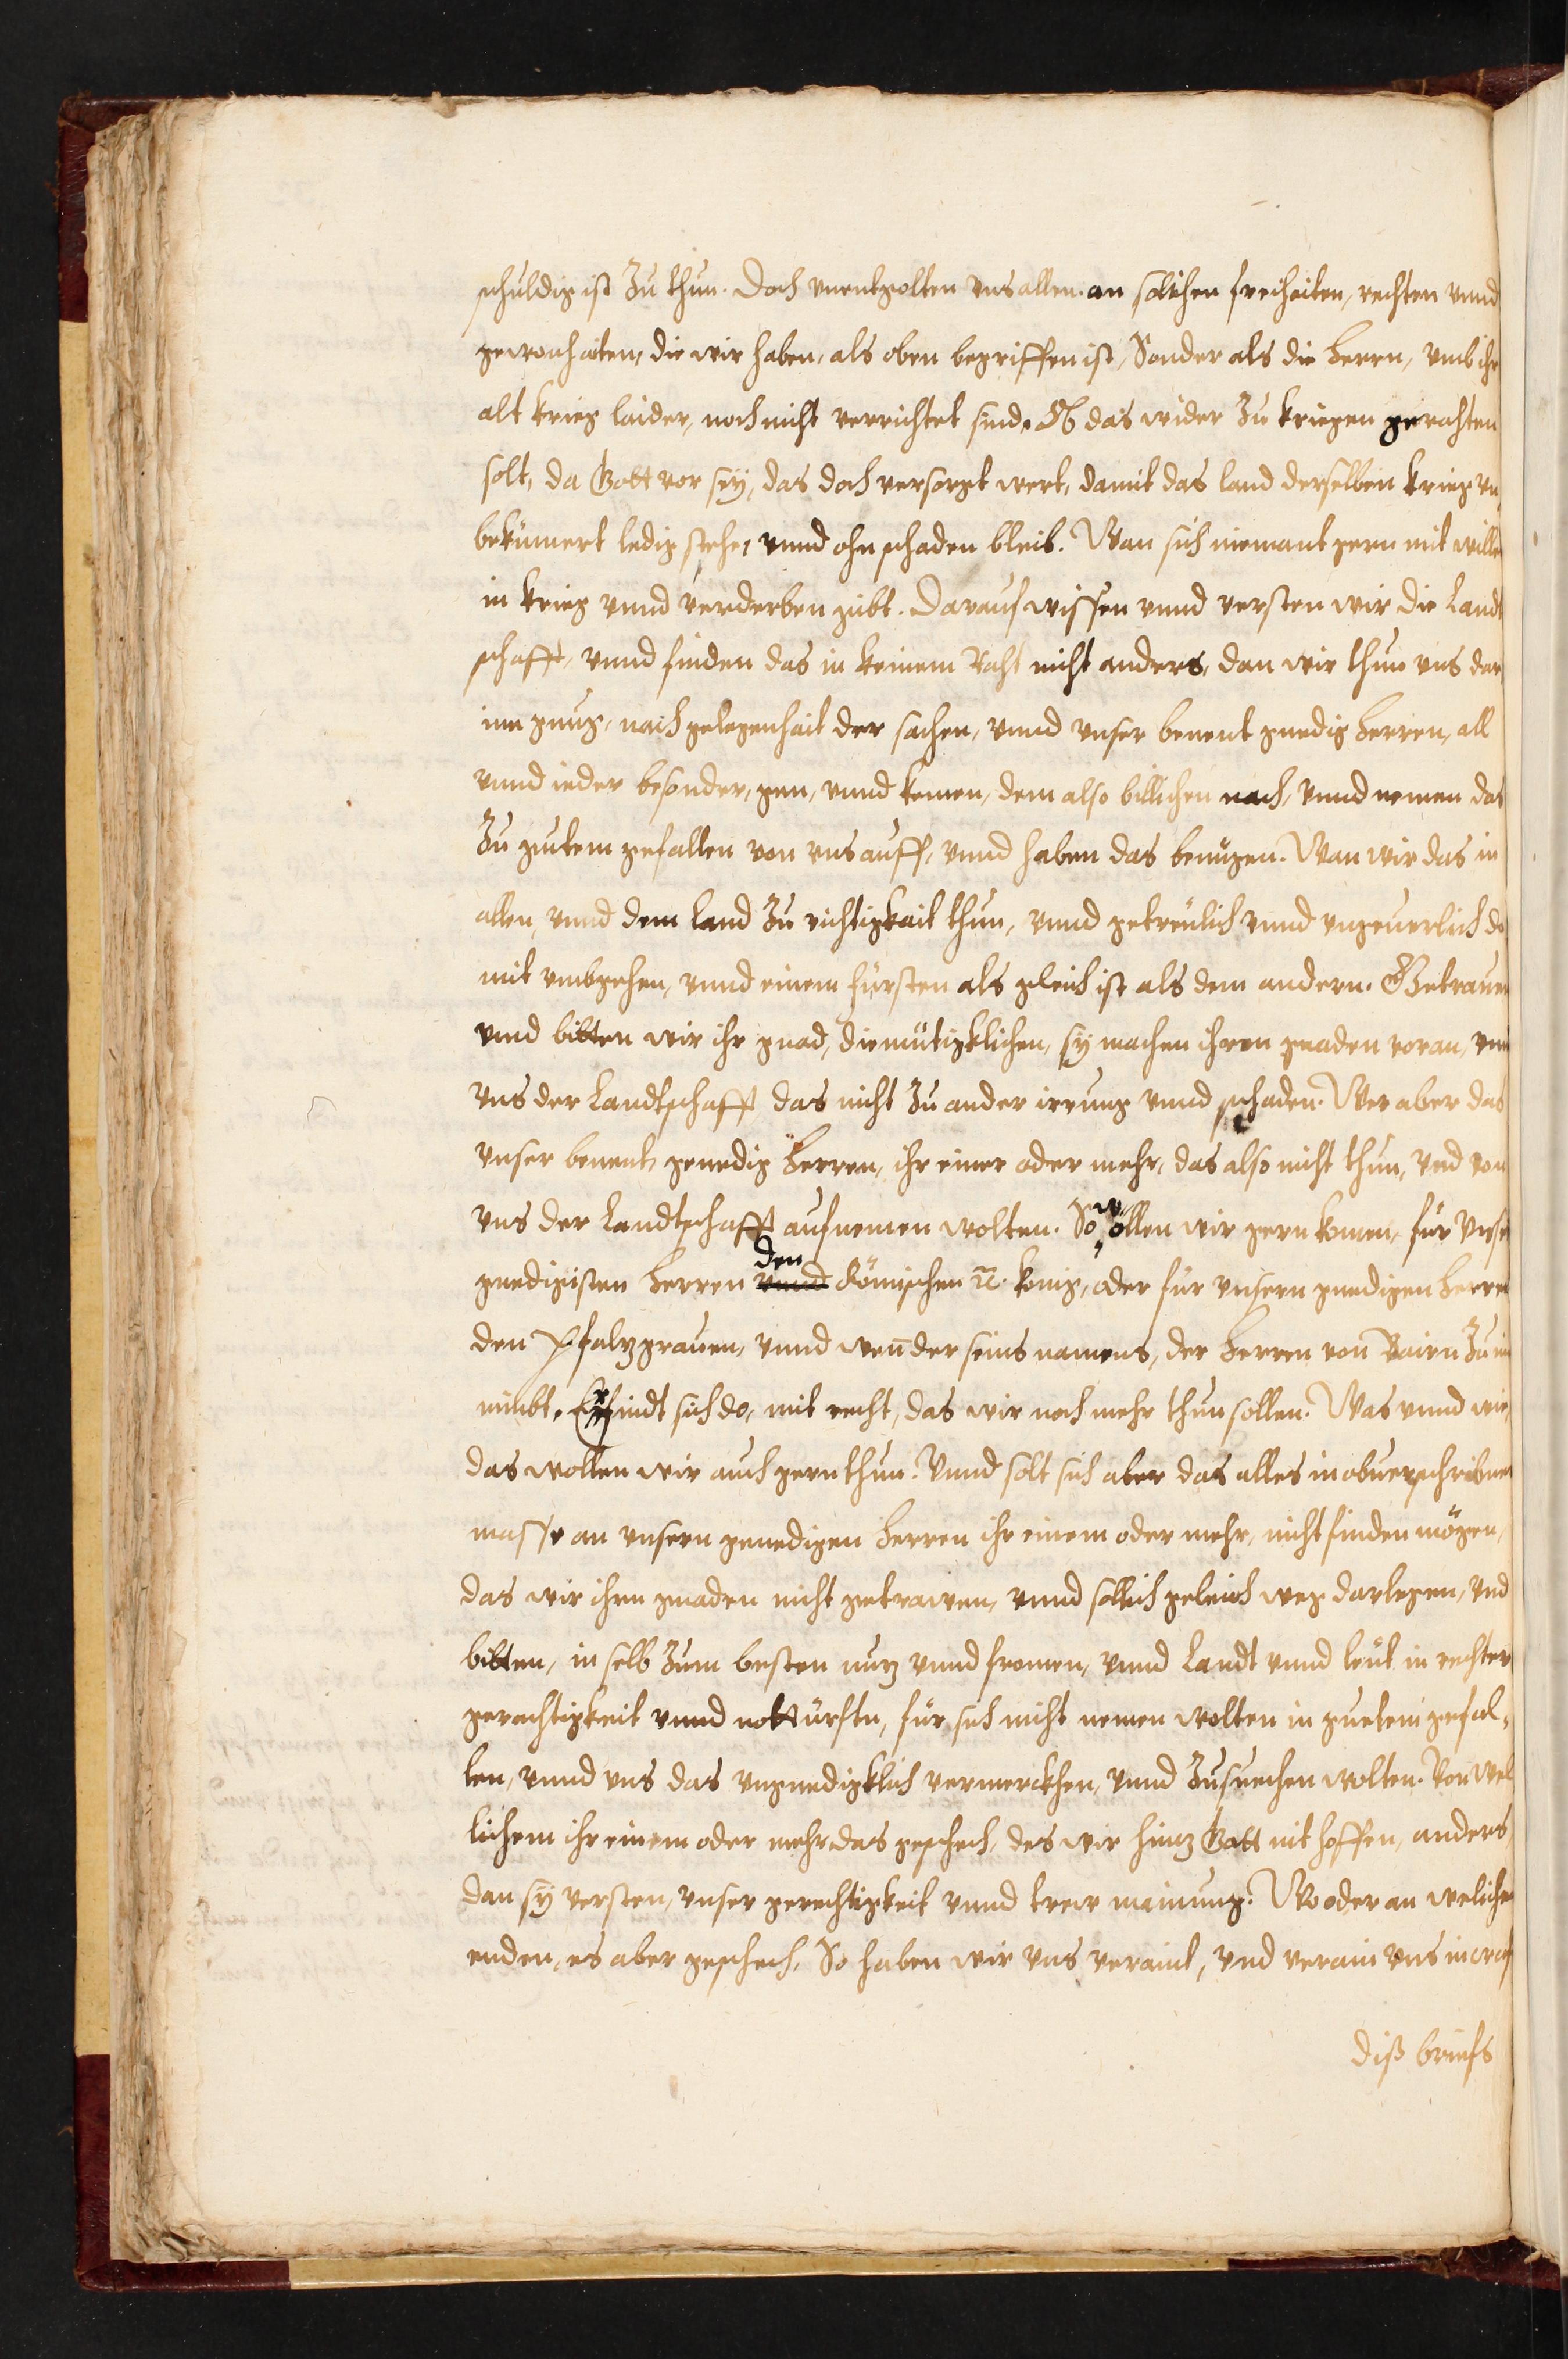 schuldig ist Zu thun. Doch vnentgolten vns allen an solichen freihaiten, rechten vnnd
gewonhaiten, die wir haben, als oben begriffen ist, Sonder als die herrn, vmb ihr
alt krieg laider, noch nicht verrichtet sind. Ob das wider Zu kriegen gerahten
solt, da Gott vor seÿ, das doch versorgt wert, damit das land derselben krieg vn
bekümert ledig stehe, vnnd ohn schaden bleib. Wan sich niemant gern mit willen
in krieg vnnd verderben gibt. Darauf wissen vnnd versten wir die Landt
schafft, vnnd finden das in keinem Raht nicht anders, dan wir thun vns dar
inn gnug, nach gelegenhait der sachen, vnnd vnser benent gnedig herren, all
vnnd ieder besonder, gen, vnnd komen, dem also billichen nach, vnnd nemen das
Zu gutem gefallen von vns auff, vnnd haben das benügen. Wan wir das in
allen, vnnd dem land Zu richtigkait thun, vnnd getreulich vnnd vngeuerlich do
mit vmbgehen, vnnd einem fürsten als gleich ist als dem andern. Getrauen
vnnd bitten wir ihr gnad, diemütigklichen, sÿ machen ihren gnaden voran, vnnd
vns der Landtschafft das nicht Zu ander irrung vnnd schaden. Wer aber das
vnser benent genedig herren, ihr einer oder mehr, das also nicht thun, vnd von
vns der Landtschafft aufnemen wolten. So wollen wir gern komen, für vnsern
gnedigisten herren den Römischen ꝛc. konig, oder für vnsern gnedigen herren
den Pfaltzgrauen, vnnd wen̄ der seins namens, der herren von Bairn Zu im
nimbt. Erfindt sich do, mit recht, das wir noch mehr thun sollen. Was vnnd wie,
das wollen wir auch gern thun. Vnnd solt sich aber das alles in obuerschribner
masse an vnsern genedigen herren ihr einem oder mehr, nicht finden mögen,
das wir ihrn gnaden nicht getrawen, vnnd sollich geleich weg darlegen, vnd
bitten, in selb Zum besten nutz vnnd fromen, vnnd Landt vnnd leut in rechter
gerechtigkeit vnnd nottürfftn, für sich nicht nemen wolten in guetem gefal-
len, vnnd vns das vngnedigklich vermerckhen, vnnd Zusuechen wolten. Von wel
lichem ihr einem oder mehr das geschech, des wir hintz Gott nit hoffen, anders,
dan sÿ versten, vnser gerechtigkeit vnnd trew mainung. Wo oder an welichen
enden, es aber geschech, So haben wir vns veraint, vnd verain vns in craft
diß briefs